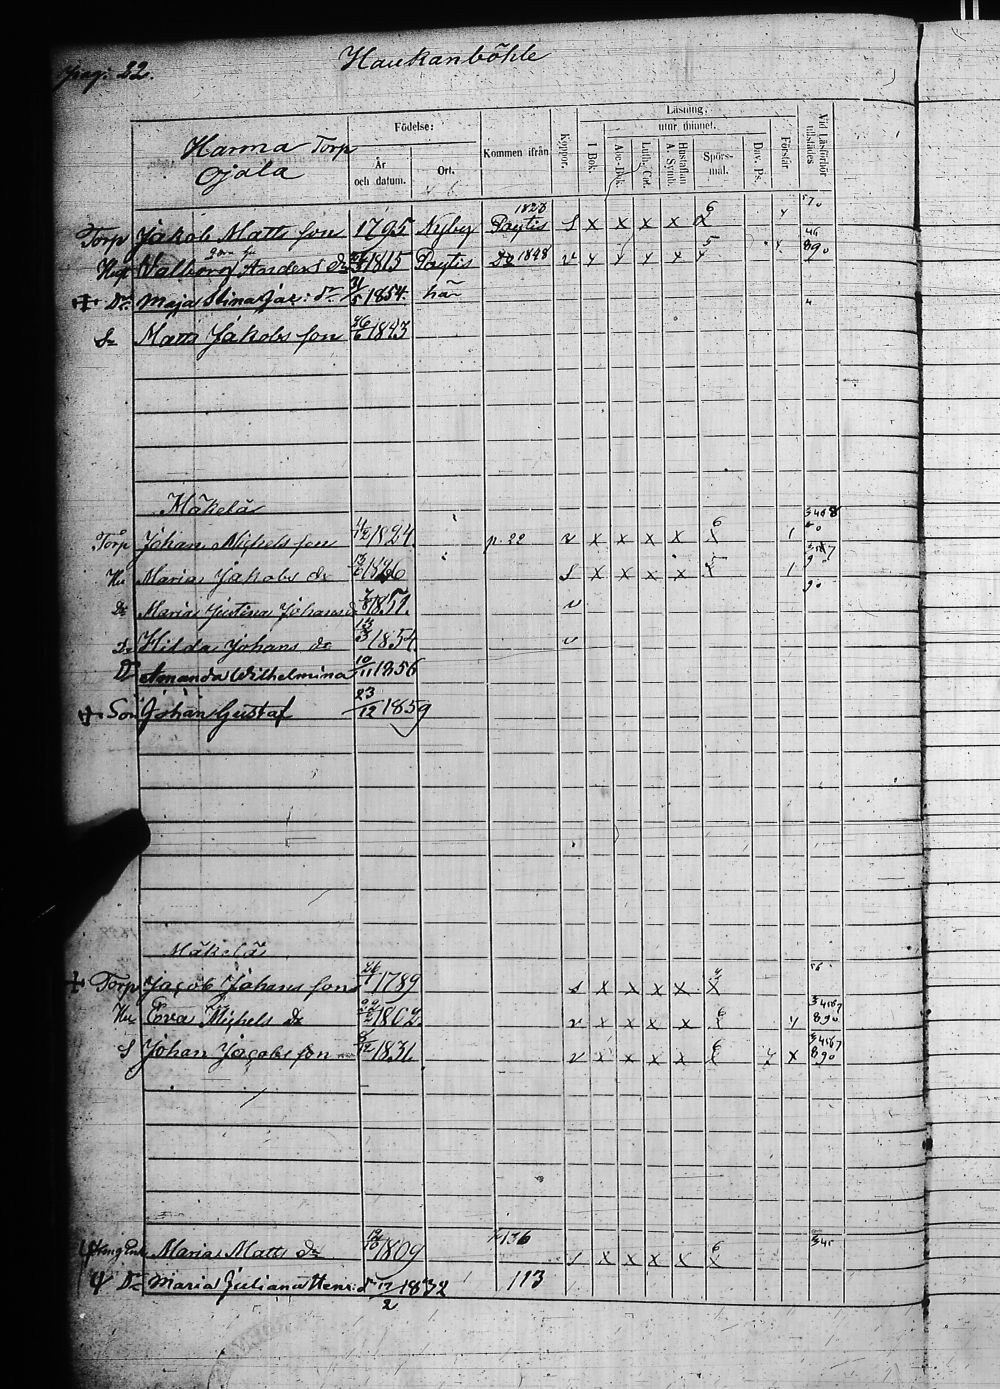 pag: 22.
Haukanböhle
Harma Torp
Ojala
Födelse:
År och datum.
Ort.
Kommen ifrån
Koppor.
Läsning,
I Bok.
utur minnet.
Abc-Bok.
Luth. Cat.
Hustaflan A. Symb.
Spörsmål.
Dav. Ps.
Förstår
Vid Läsförhör tillstädes
Torp Jakob Matts son 1795 Nyby Pzytis S x x x x 6 x
Hu Valborg Anders dr 1815 Pzytis Do 1848 v 5 890
+ Dr. Maja Stina Jac: dr 31/5 1854. här
S Matts Jakobs son 26/6 1843
Mäkelä
Torp Johan Michels son 1824. p. 22 v x x x x 6 x 1
Hu Maria Jakobs dr S x x x x x 1
Dr Maria Justina Johans d 1851. v
Dr Hilda Johans dr 13/3 1854 v
D Amanda Wilhelmina 10/11 1856
+ Son Johan Gustaf 23/12 1859
Mäkelä
+ Torp Jacob Johans son 1789 s x x x x x 56
Hu Eva Michels dr 1802. v x x x x 6 x 34567 890
S Johan Jacobs son 1831. v x x x x 6 x x 34567 890
Maria Matts dr 1809 136 s x x x x 6 x 345
Dr Maria Juliana Henr: dr 17/2 1832 113